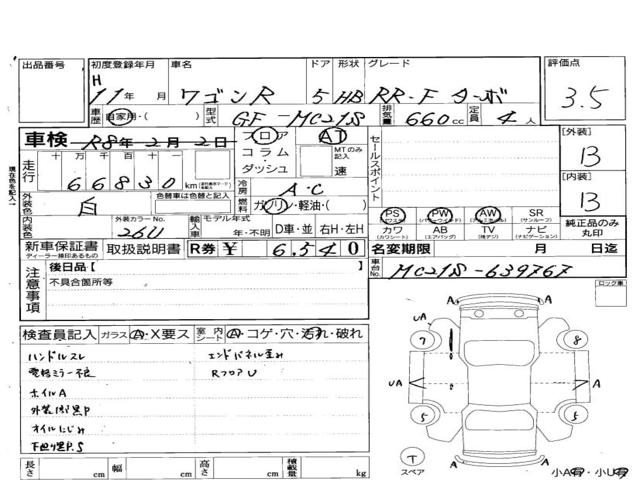 出品番号 初度登録年月 車名 ドア 形状 グレード 評価点
H 11年 月 ワゴンR 5 HB RR-Fターボ 3.5
車歴 自家用・( ) 型式 GF-MC21S 排気量 660cc 定員 4人
車検 R8年2月2日 フロア AT セールスポイント [外装]
走行 十 万 千 百 十 一 コラム・ MTのみ記入 B
66830 km ダッシュ 速
現在色を記入 外装色 白 色替車は色替と記入 冷房 A・C [内装]
燃料 ガソリン・軽油・( ) B
内装色 外装カラーNo. 26U 輸入車 モデル年式 年・不明 D車・並 右H・左H
PS PW AW SR
(パワステ) (パワーウインド) (アルミホイル) (サンルーフ)
カワ AB TV ナビ 純正品のみ丸印
(カワシート) (エアバッグ) (ナビゲーション)
新車保証書 取扱説明書 R券 ¥ 6,540 名変期限 月 日迄
ディーラー捺印あるもの
注意事項 後日品【 】 車台No. MC21S-639767
不具合箇所等 ロック車
検査員記入 ガラス A・X要ス 室内シート A・コゲ・穴・汚れ・破れ
ハンドルスレ エンドパネル歪み
電格ミラー不良 RフロアU
ホイルA
オイルにじみ
下廻り P.S
UA A
7 8
UA A
5 5
A
T
スペア
長さ cm 幅 cm 高さ cm 積載量 kg 小A有・小U有